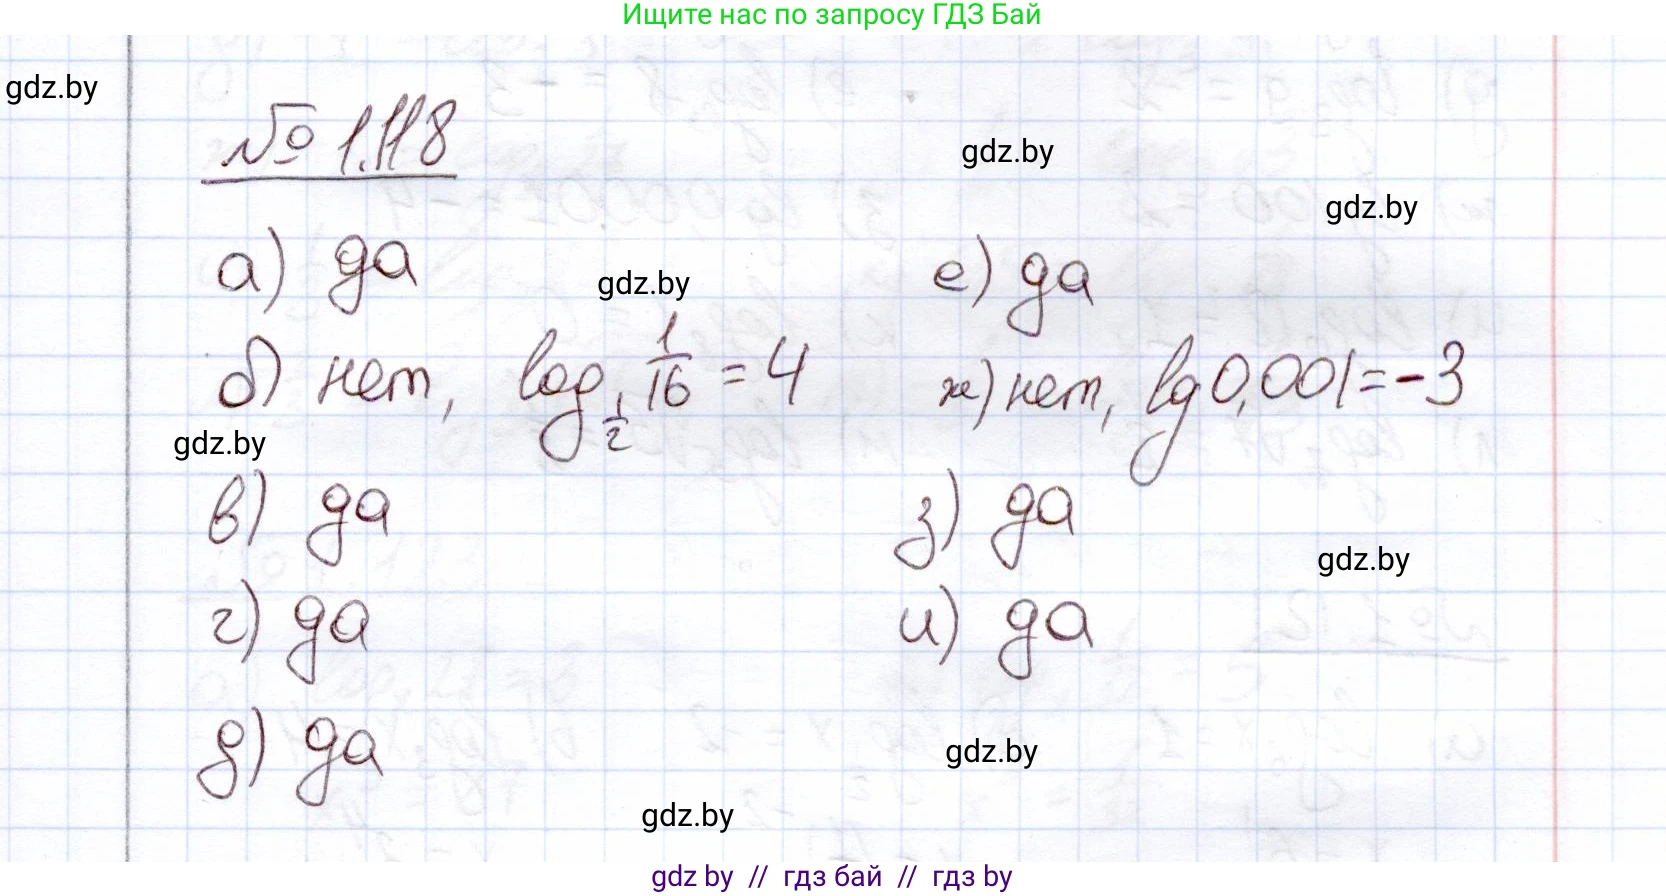 Ищите нас по запросу ГДЗ Бай
gdz.by
№ 1.118
gdz.by
gdz.by
а) да
gdz.by
е) да
б) нет, log_{1/2} 1/16 = 4
ж) нет, lg 0,001 = -3
gdz.by
в) да
з) да
gdz.by
г) да
и) да
д) да
gdz.by
gdz.by
gdz by // гдз бай // гдз by